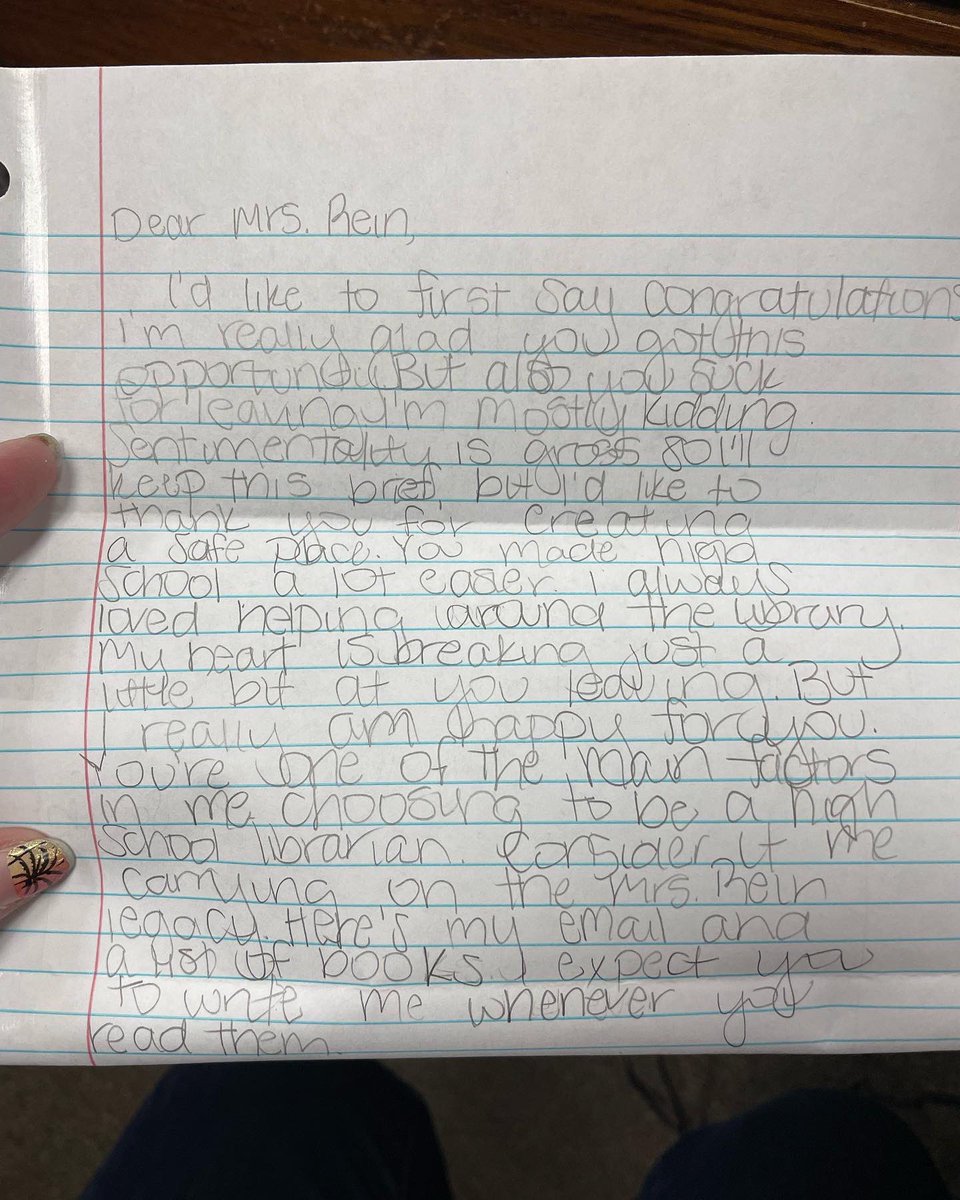 Dear Mrs. Rein,
I'd like to first say congratulations
I'm really glad you got this
opportunity. But also you suck
for leaving. I'm mostly kidding.
Sentimentality is gross so I'll
keep this brief, but I'd like to
thank you for creating
a safe place. You made high
school a lot easer. I always
loved helping around the library.
My heart is breaking just a
little bit at you leaving. But
I really am happy for you.
You're one of the main factors
in me choosing to be a high
school librarian. Consider it me
carrying on the Mrs. Rein
legacy. Here's my email and
a list of books. I expect you
to write me whenever you
read them.